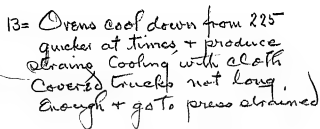 13= Ovens cool down from 225
quicker at times, + produce
strains Cooling with cloth
Covered trucks not long
Enough + go to press strained